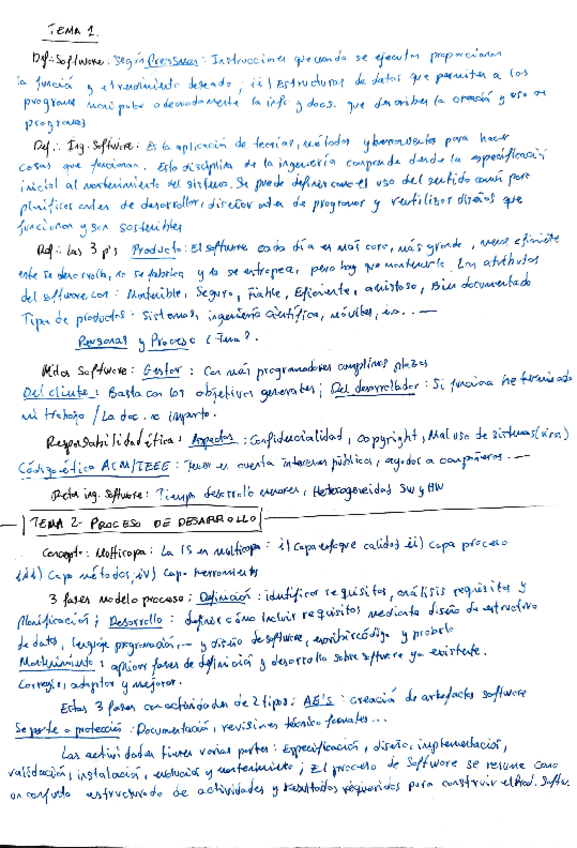 TEMA 1.
Def.: Software: Según Pressman: Instrucciones que cuando se ejecutan proporcionan
la función y el rendimiento deseado; ii) Estructuras de datos que permiten a los
programas manipular adecuadamente la info y docs. que describen la operación y uso de
programas
Def.: Ing. Software: Es la aplicación de teorías, métodos y herramientas para hacer
cosas que funcionan. Esta disciplina de la ingeniería comprende desde la especificación
inicial al mantenimiento del sistema. Se puede definir como el uso del sentido común para
planificar antes de desarrollar, diseñar antes de programar y reutilizar diseños que
funcionan y son sostenibles
Def.: Las 3 p's Producto: El software cada día es más caro, más grande, menos eficiente
este se desarrolla, no se fabrica y no se estropea, pero hay que mantenerlo. Los atributos
del software son: Mantenible, Seguro, Fiable, Eficiente, amistoso, Bien documentado
Tipos de productos: Sistemas, ingeniería científica, móviles, ...
Personas y Proceso Tema 2.
Mitos Software: Gestor: Con más programadores cumplimos plazos
Del cliente: Basta con los objetivos generales; Del desarrollador: Si funciona he terminado
mi trabajo / La doc. no importa.
Responsabilidad ética: Aspectos: Confidencialidad, copyright, Mal uso de sistemas (virus)
Código ético ACM/IEEE: Tener en cuenta intereses públicos, ayudar a compañeros...
Retos ing. software: Tiempo desarrollo menores, Heterogeneidad SW y HW
TEMA 2- PROCESO DE DESARROLLO
Concepto: Multicapa: La IS es multicapa: i) Capa enfoque calidad ii) Capa proceso
iii) Capa métodos, iv) Capa herramientas
3 fases modelo proceso: Definición: identificar requisitos, análisis requisitos y
planificación; Desarrollo: definir cómo incluir requisitos mediante diseño de estructura
de datos, lenguaje programación, ... y diseño de software, escribir código y probarlo
Mantenimiento: aplicar fases de definición y desarrollo sobre software ya existente.
Corregir, adaptar y mejorar.
Estas 3 fases con actividades de 2 tipos: AE's: creación de artefactos software
Soporte o protección: Documentación, revisiones técnico formales...
Las actividades tienen varias partes: Especificación, diseño, implementación,
validación, instalación, evolución y mantenimiento; El proceso de Software se resume como
un conjunto estructurado de actividades y resultados requeridos para construir el Prod. Softw.